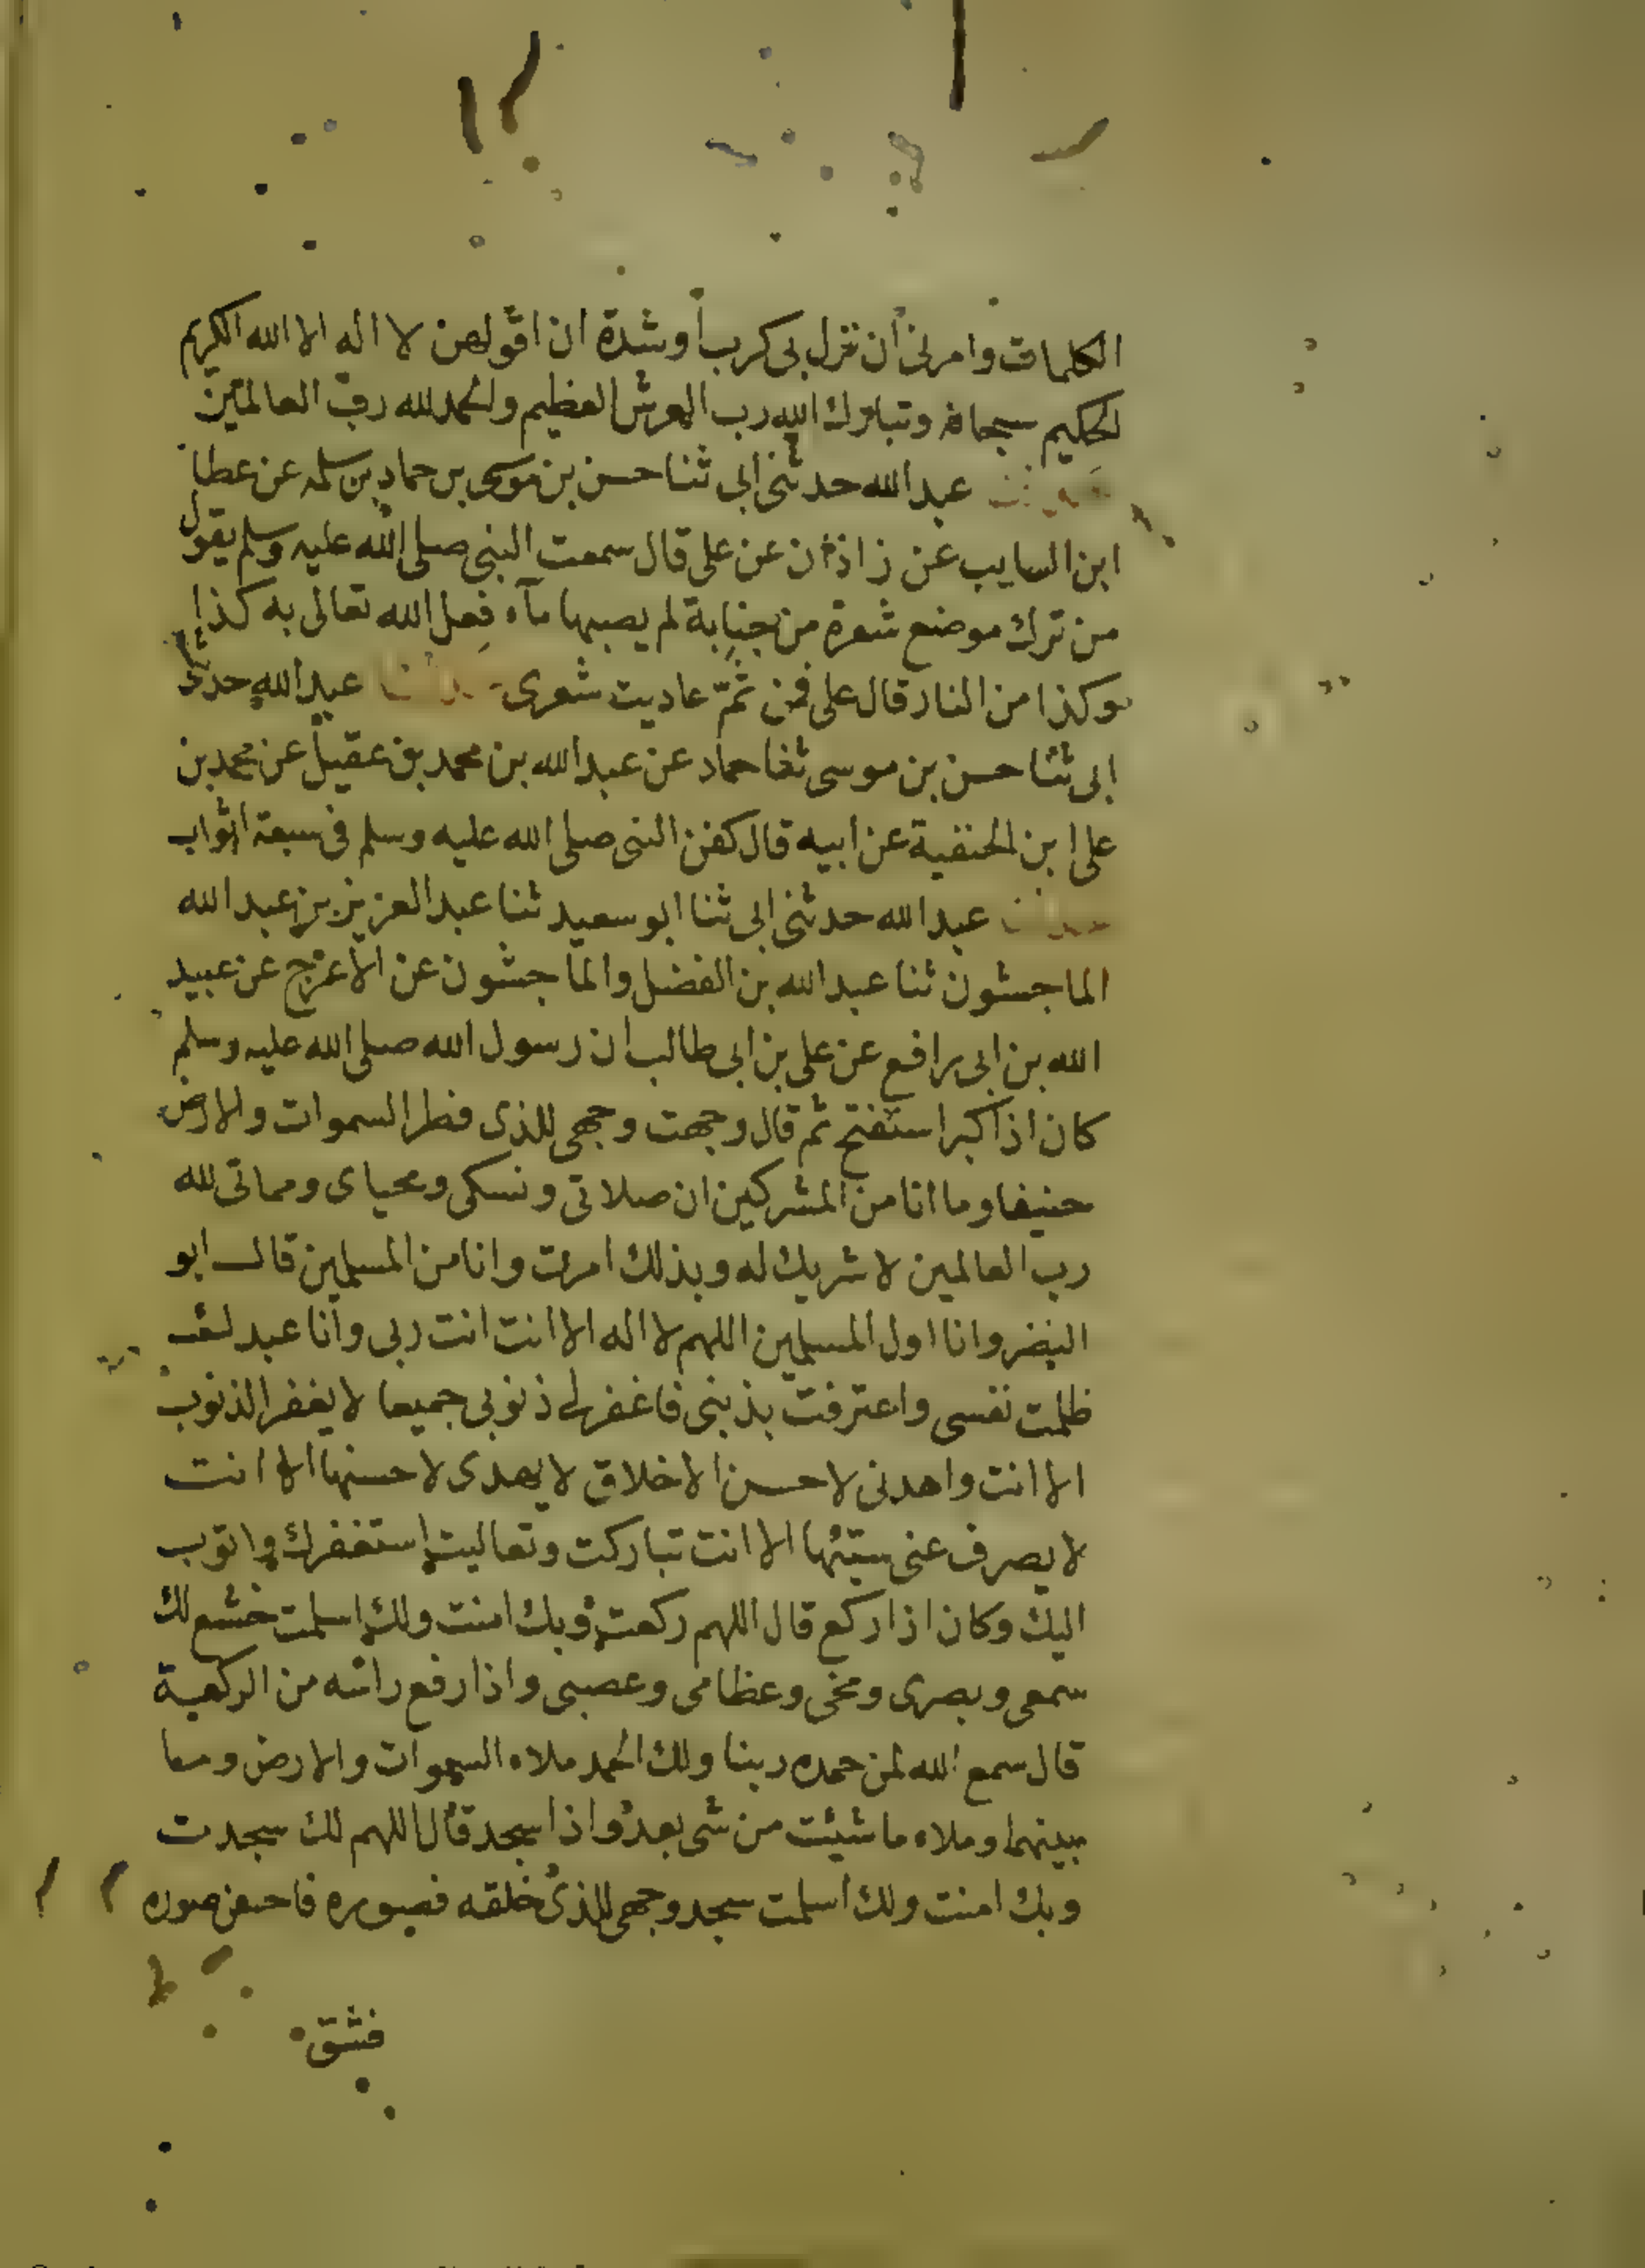 الكلمات وامرنى ان نزل بى كرب أو شدة ان اقولهن لا اله الا الله الكريم
الحكيم سبحانه وتبارك الله رب العرش العظيم والحمد لله رب العالمين
عبد الله حدثنى ابى ثنا حسن بن موسى بن حماد بن سلمه عن عطا
ابن السايب عن زاذان عن على قال سمعت النبى صلى الله عليه وسلم يقول
من ترك موضع شعرة من جنابة لم يصبها مآء فعل الله تعالى به كذا
وكذا من النار قال على فمن ثمّ عاديت شعرى عبد الله حدثنى
ابى ثنا حسن بن موسى ثنا حماد عن عبد الله بن محمد بن عقيل عن محمد بن
على ابن الحنفية عن ابيه قال كفن النبى صلى الله عليه وسلم فى سبعة اثواب
عبد الله حدثنى ابى ثنا ابو سعيد ثنا عبد العزيز بن عبد الله
الماجشون ثنا عبد الله بن الفضل والماجشون عن الاعرج عن عبيد
الله بن ابى رافع عن على بن ابى طالب ان رسول الله صلى الله عليه وسلم
كان اذا كبر استفتح ثم قال وجهت وجهى للذى فطر السموات والارض
حنيفا وما انا من المشركين ان صلاتى ونسكى ومحياى ومماتى لله
رب العالمين لا شريك له وبذلك امرت وانا من المسلمين قال ابو
النضر وانا اول المسلمين اللهم لا اله الا انت انت ربى وانا عبدك
ظلمت نفسى واعترفت بذنبى فاغفر لى ذنوبى جميعا لا يغفر الذنوب
الا انت واهدنى لاحسن الاخلاق لا يهدى لاحسنها الا انت
لا يصرف عنى سيئها الا انت تباركت وتعاليت استغفرك واتوب
اليك وكان اذا ركع قال اللهم ركعت وبك امنت ولك اسلمت خشع لك
سمعى وبصرى ومخى وعظامى وعصبى واذا رفع راسه من الركعة
قال سمع الله لمن حمده ربنا ولك الحمد ملاء السموات والارض وما
بينهما وملاء ما شيئت من شى بعد واذا سجد قال اللهم لك سجدت
وبك امنت ولك اسلمت سجد وجهى للذى خلقه فصوره فاحسن صوره
فشق